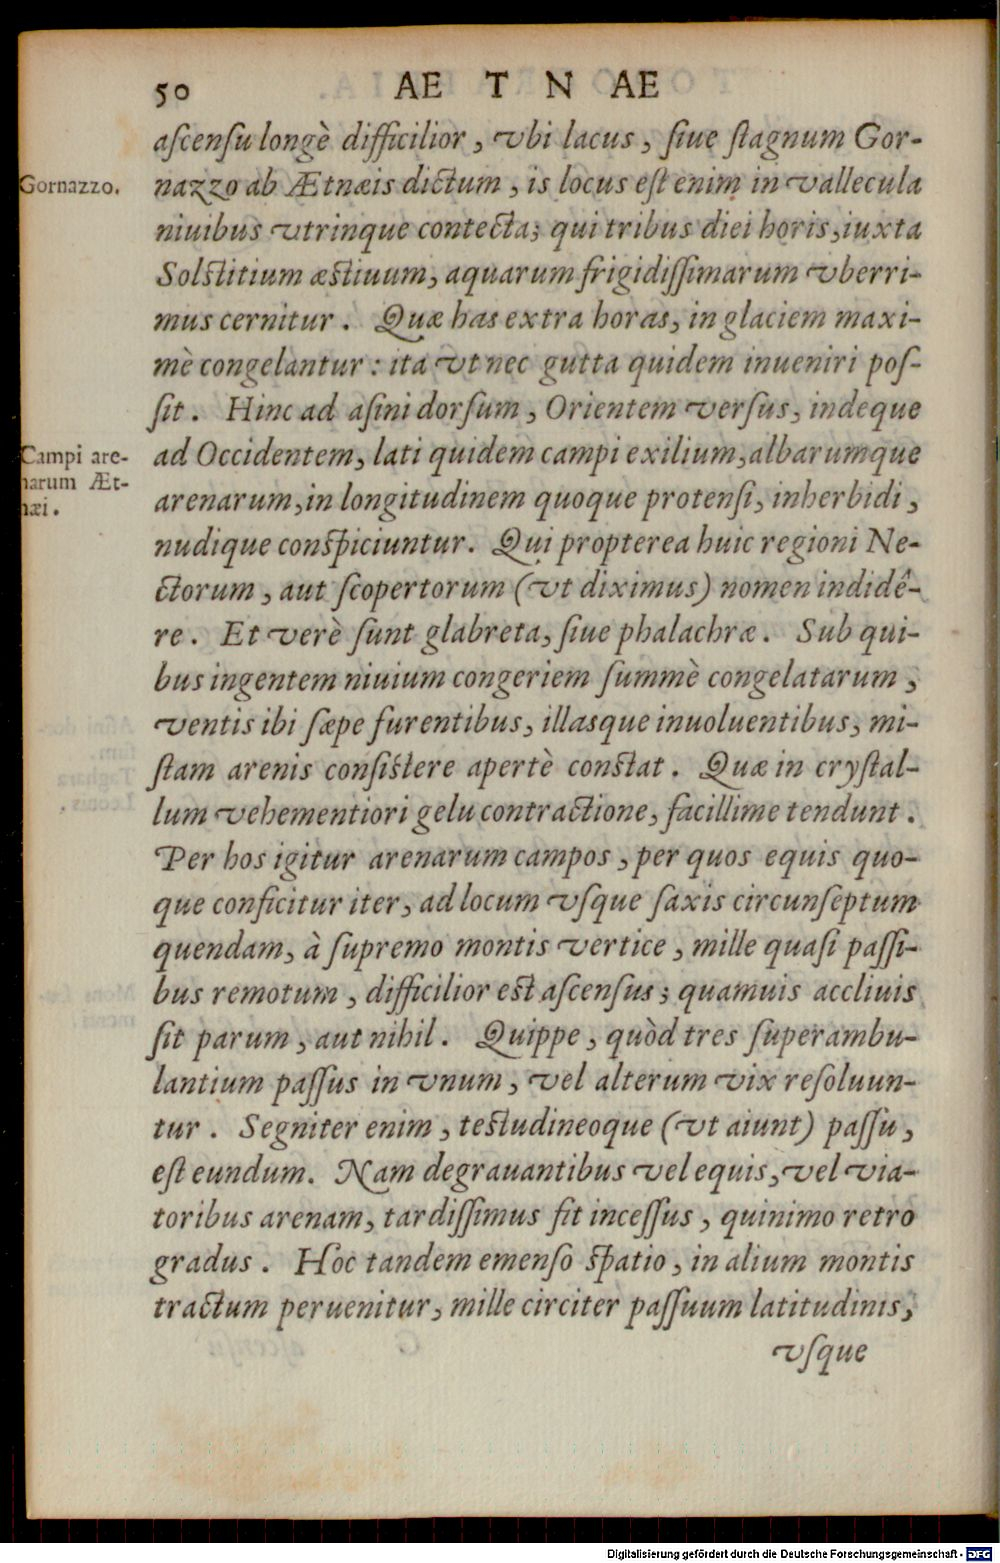 50 AE T N AE
aſcenſu longè difficilior, vbi lacus, ſiue ſtagnum Gor-
Gornazzo.
nazzo ab Ætnæis dictum, is locus eſt enim in vallecula
niuibus vtrinque contecta; qui tribus diei horis, iuxta
Solſtitium æſtiuum, aquarum frigidiſſimarum vberri-
mus cernitur. Quæ has extra horas, in glaciem maxi-
mè congelantur: ita vt nec gutta quidem inueniri poſ-
ſit. Hinc ad aſini dorſum, Orientem verſus, indeque
Campi are-
narum Æt-
næi.
ad Occidentem, lati quidem campi exilium, albarumque
arenarum, in longitudinem quoque protenſi, inherbidi,
nudique conſpiciuntur. Qui propterea huic regioni Ne-
ctorum, aut ſcopertorum (vt diximus) nomen indidê-
re. Et verè ſunt glabreta, ſiue phalachræ. Sub qui-
bus ingentem niuium congeriem ſummè congelatarum,
ventis ibi ſæpe furentibus, illasque inuoluentibus, mi-
ſtam arenis conſiſtere apertè conſtat. Quæ in cryſtal-
lum vehementiori gelu contractione, facillime tendunt.
Per hos igitur arenarum campos, per quos equis quo-
que conficitur iter, ad locum vſque ſaxis circunſeptum
quendam, à ſupremo montis vertice, mille quaſi paſſi-
bus remotum, difficilior eſt aſcenſus; quamuis accliuis
ſit parum, aut nihil. Quippe, quòd tres ſuperambu-
lantium paſſus in vnum, vel alterum vix reſoluun-
tur. Segniter enim, teſtudineoque (vt aiunt) paſſu,
eſt eundum. Nam degrauantibus vel equis, vel via-
toribus arenam, tardiſſimus fit inceſſus, quinimo retro
gradus. Hoc tandem emenſo ſpatio, in alium montis
tractum peruenitur, mille circiter paſſuum latitudinis,
vſque
Digitalisierung gefördert durch die Deutsche Forschungsgemeinschaft - DFG